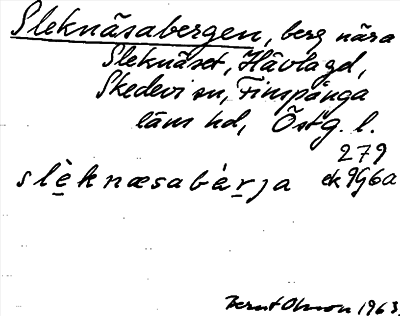 Sleknäsabergen, berg nära
Sleknäset, Hävla gd,
Skedevi sn, Finspånga
läns hd, Östg. l.
279
slèknæsabàrja ek 9G6a
Bernt Olsson 1963.